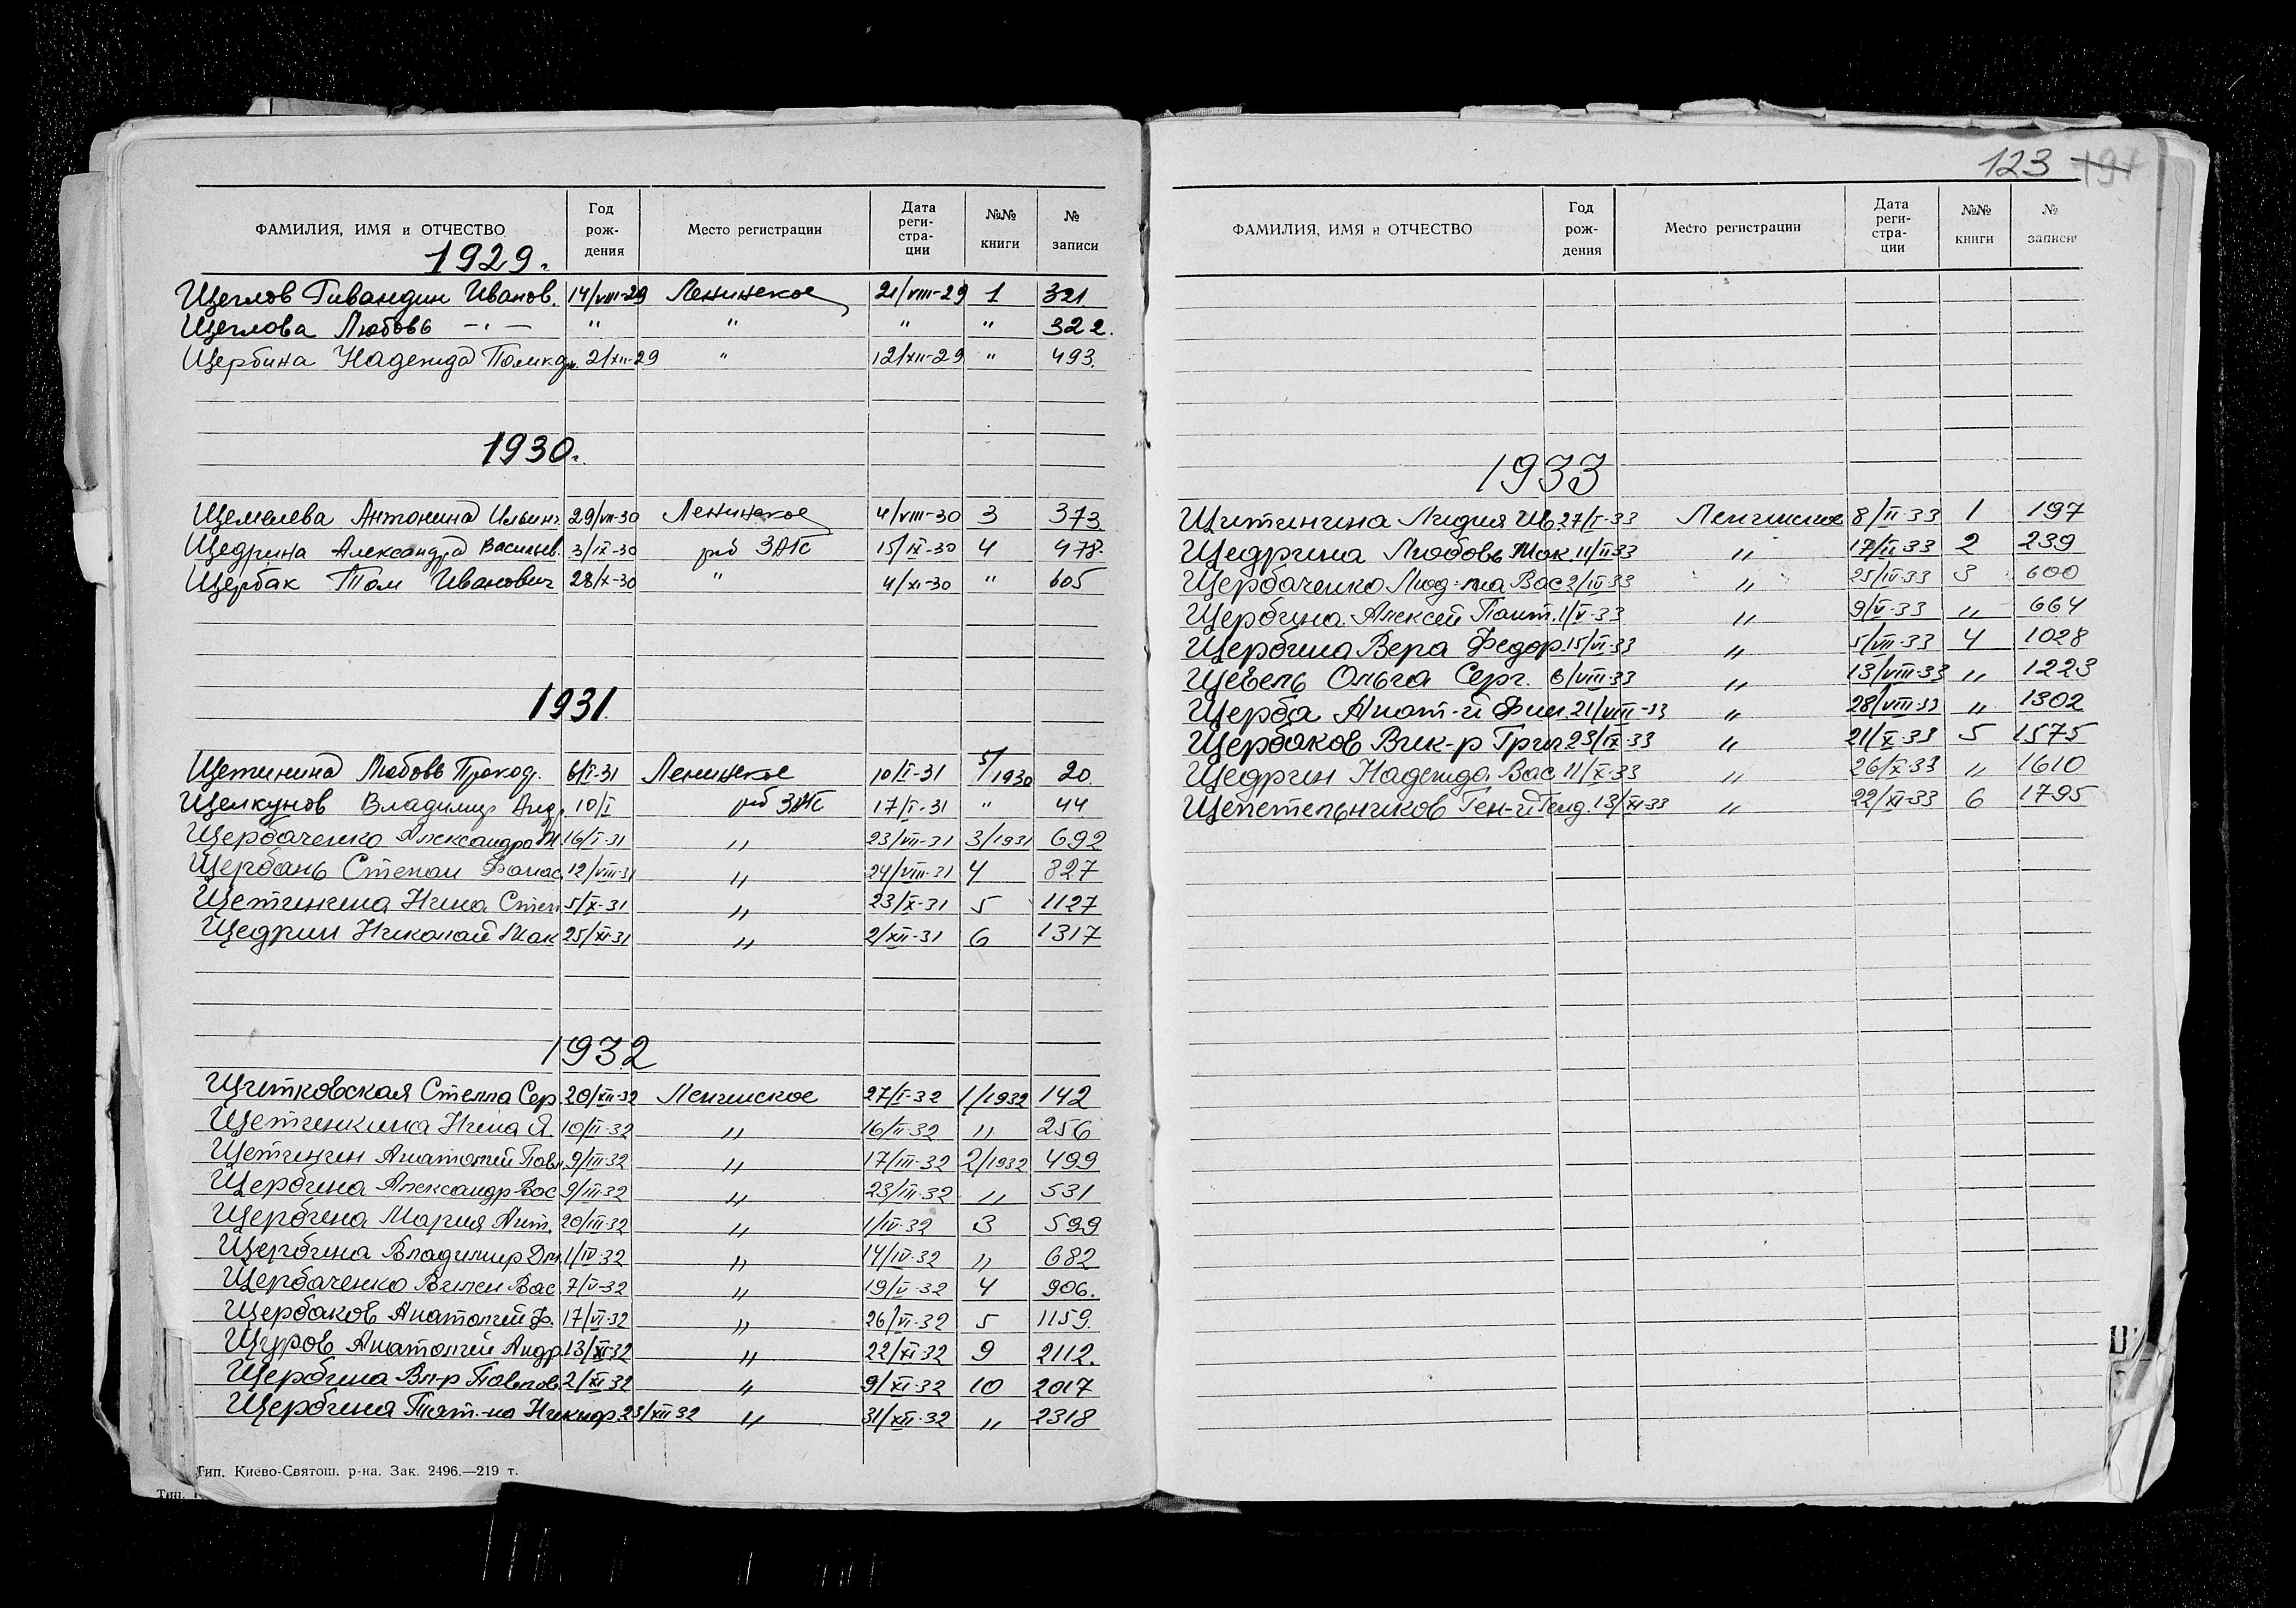 ФАМИЛИЯ, ИМЯ и ОТЧЕСТВО Год рож- дения Место регистрации Дата реги- стра- ции №№ книги № записи
1929г.
Щеглов Ивандин Иванов. 14/VIII-29 Ленинское 21/VIII-29 1 321
Щеглова Любовь -"- " " " " 322.
Щербина Надежда 2/XII-29 " 12/XII-29 " 493.
1930г.
Щемелева Антонина Ильин. 29/VII-30 Ленинское 4/VIII-30 3 373
Щедрина Александра Васильев. 3/IX-30 рб ЗАГС 15/IX-30 4 478.
Щербак Том Иванович 28/X-30 " 4/XI-30 " 605
1931.
Щетинина Любовь Прокоф. 6/I-31 Ленинское 10/I-31 5/1930 20.
Щелкунов Владимир Анд. 10/I рб ЗАГС 17/I-31 " 44
Щербаченко Александра 16/I-31 " 23/VII-31 3/1931 692
Щербань Степан Фанас. 12/VIII-31 " 24/VIII-31 4 827
Щетинина Нина Степ 5/X-31 " 23/X-31 5 1127
Щедрин Николай Мак 25/XI-31 " 2/XII-31 6 1317
1932
Щитковская Стелла Сер. 20/XII-32 Ленинское 27/I-32 1/1932 142
Щетинкина Нина Я. 10/II-32 " 16/II-32 " 256
Щетинин Анатолий Павл 9/III-32 " 17/III-32 2/1932 499
Щербина Александр Вас 9/III-32 " 23/III-32 " 531
Щербина Мария Ант. 20/III-32 " 1/IV-32 3 599
Щербина Владимир Дм. 1/IV-32 " 14/IV-32 " 682
Щербаченко Вилен Вас 7/V-32 " 19/V-32 4 906.
Щербаков Анатолий Ф. 17/VI-32 " 26/VI-32 5 1159.
Щуров Анатолий Андр 13/XI-32 " 22/XI-32 9 2112.
Щербина Вл-р Павлов. 2/XI-32 " 9/XI-32 10 2017
Щербина Тат-на Никифр. 23/XII 32 " 31/XII-32 " 2318
Тип. Киево-Святош. р-на. Зак. 2496.—219 т.
Тип.
123 191
ФАМИЛИЯ, ИМЯ и ОТЧЕСТВО Год рож- дения Место регистрации Дата реги- стра- ции №№ книги № записи
1933
Щитинина Лидия Ив. 27/I-33 Ленинское 8/II-33 1 197
Щедрина Любовь Мак. 11/II 33 " 17/II 33 2 239
Щербаченко Люд-ла Вас 2/IV 33 " 25/IV-33 3 600
Щербина Алексей Пант. 1/V-33 " 9/V-33 " 664
Щербина Вера Федор. 15/VI-33 " 5/VII-33 4 1028
Щевель Ольга Серг. 6/VIII-33 " 13/VIII-33 " 1223
Щерба Анат-й Фил. 21/VIII-33 " 28/VIII-33 " 1302
Щербаков Вик-р Григ 23/IX-33 " 21/X-33 5 1575
Щедрин Надежда Вас 11/X-33 " 26/X-33 " 1610
Щепетельников Ген-й Генд. 13/XI-33 " 22/XI-33 6 1795